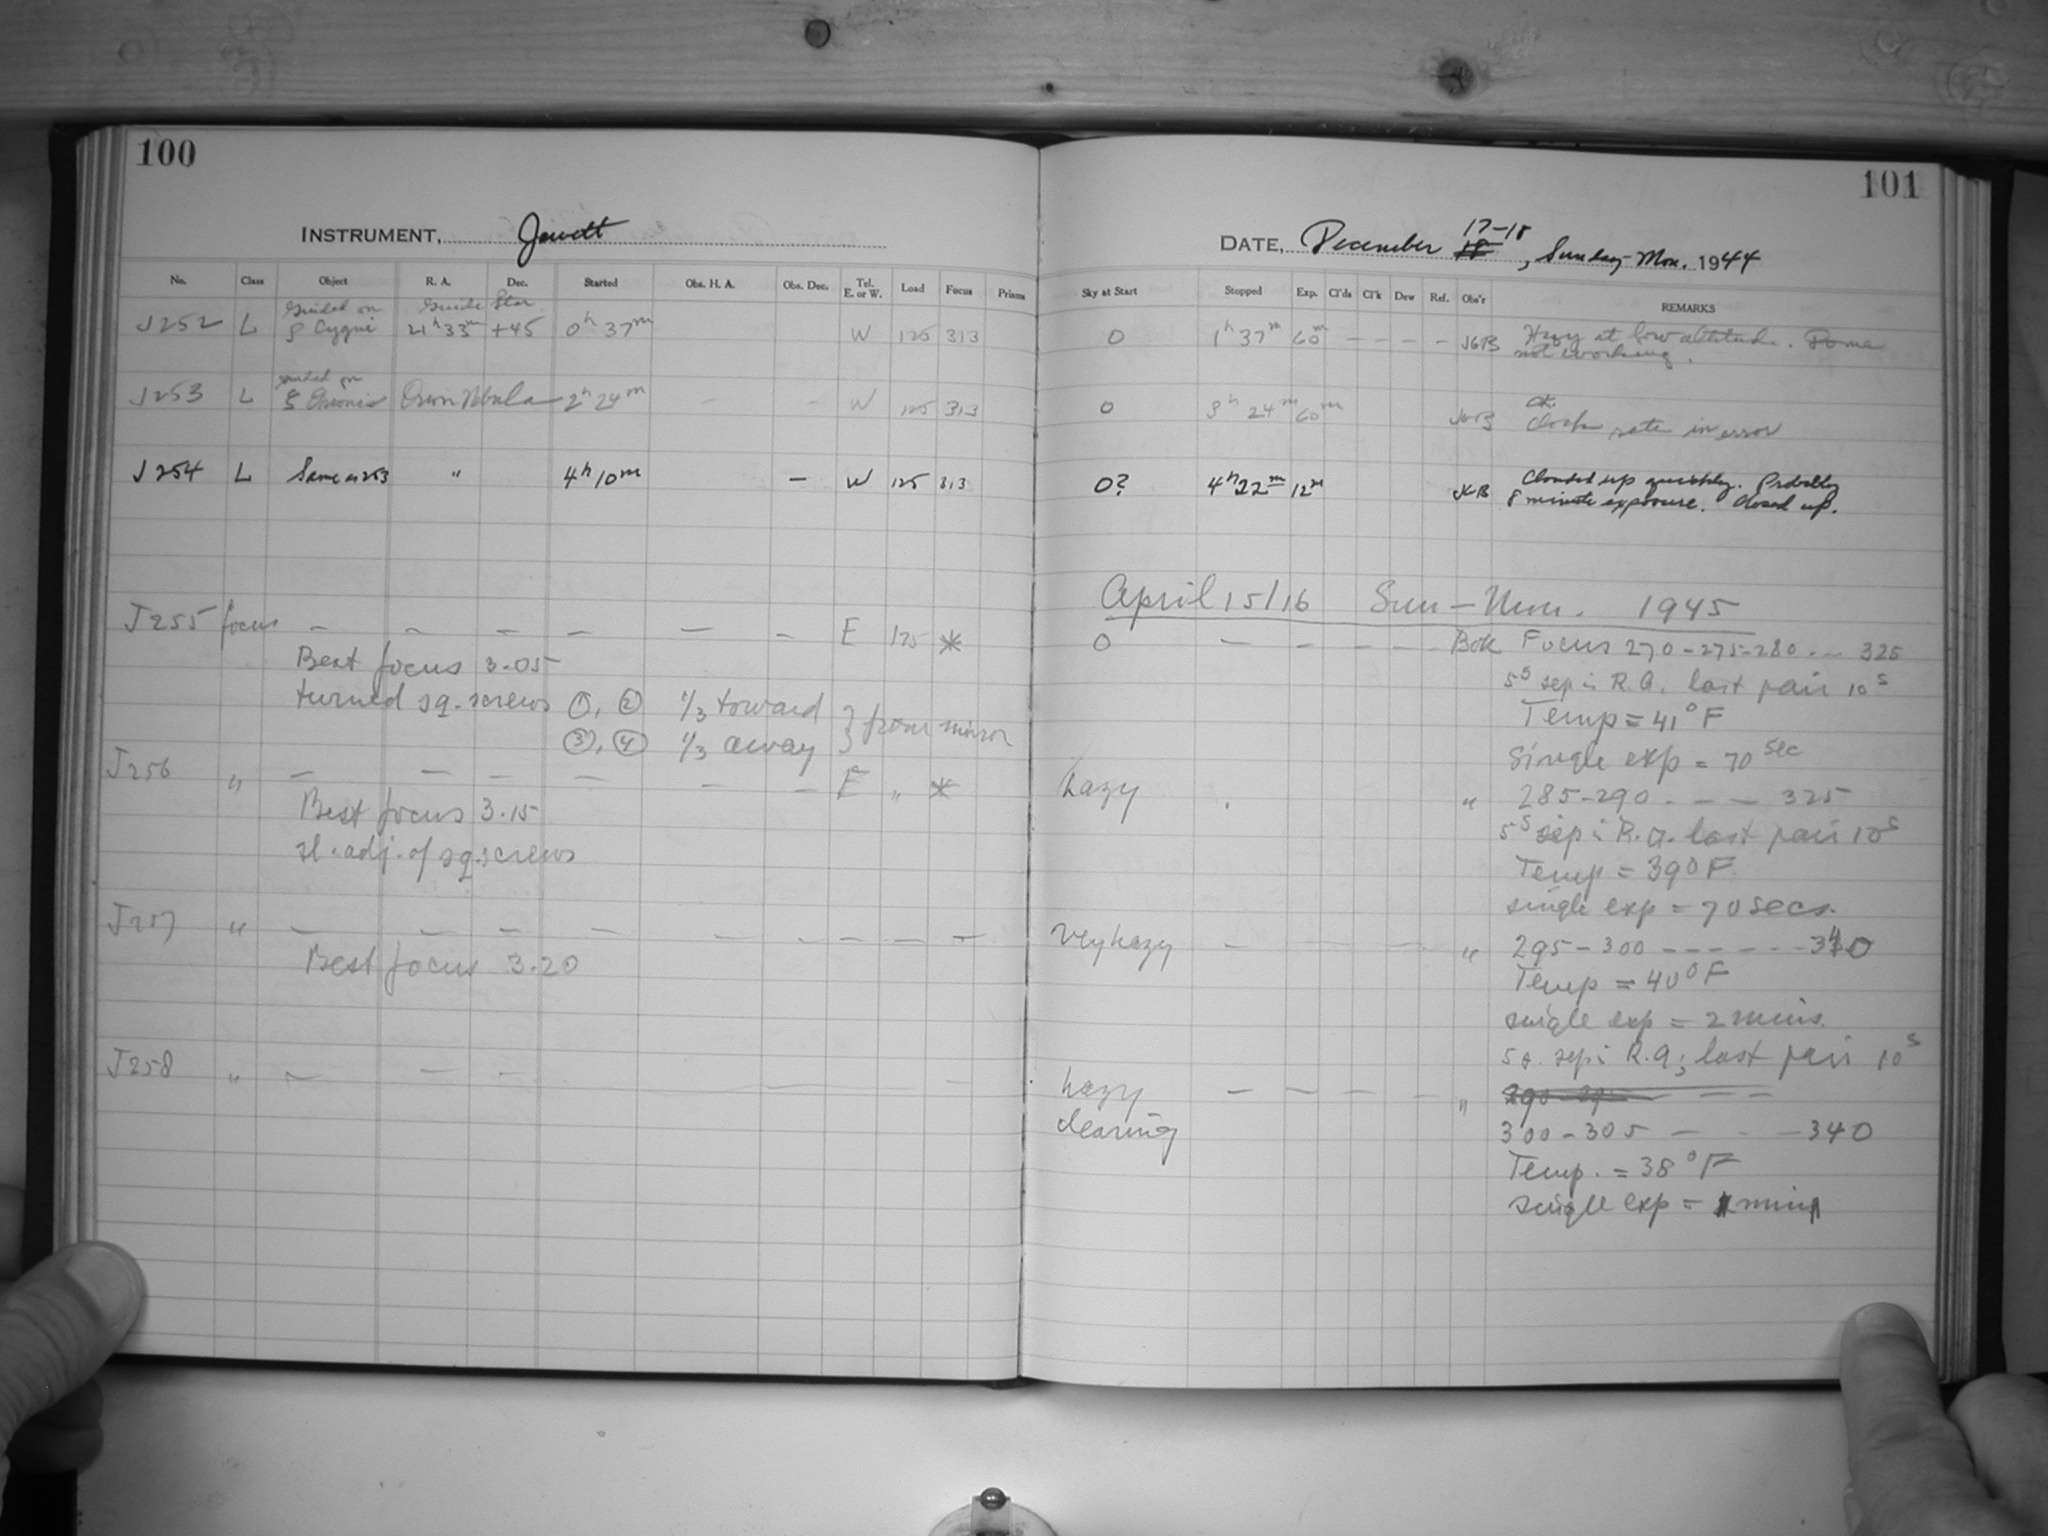 100
INSTRUMENT, Jewett
No. Class Object R. A. Dec. Started Obs. H. A. Obs. Dec. Tel. E. or W. Load Focus Prisms
Guided on Guide Star
J252 L ρ Cygni 21h 33m +45 0h 37m W 125 313
guided on
J253 L ξ Orionis Orion Nebula 2h 24m - W 125 313
J254 L Same as 253 " 4h 10m - W 125 313
J255 focus - - - - - - E 125 *
Best focus 3.05
turned sq. screws ①, ② 1/3 toward
③, ④ 1/3 away } from mirror
J256 " - - - - - - E " *
Best focus 3.15
sl. adj. of sq. screws
J257 " - - - - - - - - -
Best focus 3.20
J258 " - - -
101
DATE, December 17-18 18, Sunday-Mon. 1944
Sky at Start Stopped Exp. Cl'ds Cl'k Dew Ref. Obs'r REMARKS
0 1h 37m 60m - - - - Hazy at low altitude. Dome
not working.
0 3h 24m 60m
Clock rate in error
0? 4h 22m 12m Clouded up quickly. Probably
8 minute exposure. Closed up.
April 15/16 Sun-Mon. 1945
0 - - - - - Bok Focus 270-275-280 .. - 325
5s sep in R.A. last pair 10s
Temp = 41°F
Single exp = 70 sec
hazy " 285-290 - - - 325
5s sep in R.A. last pair 10s
Temp = 39°F
single exp = 70 secs.
very hazy - - - " 295-300 - - - - - - 340
Temp = 40°F
single exp = 2 mins.
5s. sep in R.A; last pair 10s
hazy - - - - - " 290 - -
clearing 300-305 - - - 340
Temp. = 38°F
single exp = min